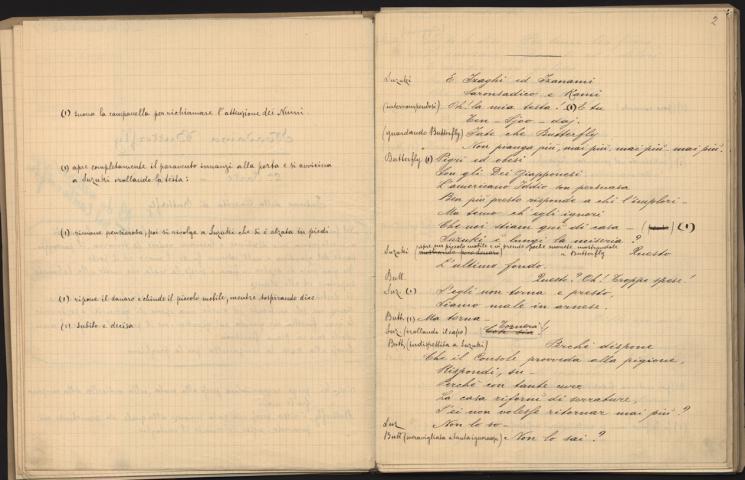 (1) suona la campanella per richiamare l'attenzione dei Numi
(1) apre completamente il paravento innanzi alla porta e si avvicina
a Suzuki crollando la testa:
(1) rimane pensierosa, poi si rivolge a Suzuki che si è alzata in piedi
(1) ripone il danaro e chiude il piccolo mobile, mentre sospirando dice
(1) subito e decisa
2
Suzuki E Izaghi ed Izanami
Sarundasico e Kami
(interrompendosi) Oh! la mia testa! (1) E tu
Ten - Sjoo - daj.
(guardando Butterfly) Fate che Butterfly
Non pianga più, mai più, mai più - mai più.
Butterfly (1) Pigri ed obesi
Son gli Dei Giapponesi
L'americano Iddio son persuasa
Ben più presto risponde a chi l'implori -
Ma temo ch'egli ignori
Che noi stiam qui di casa - (1)
Suzuki è lungi la miseria?
Suzuki (apre un piccolo mobile e vi prende poche monete mostrandole
a Butterfly) Questo
L'ultimo fondo.
Butt. Questo? Oh! Troppe spese!
Suz. (1) S'egli non torna e presto,
Siamo male in arnese.
Butt. (1) Ma torna -
Suz (crollando il capo) Tornerà!
Butt. (indispettita a Suzuki) Perchè dispone
Che il Console provveda alla pigione,
Rispondi, su -
Perchè con tante cure
La casa rifornì di serrature,
S'ei non volesse ritornar mai più?
Suz Non lo so -
Butt (meravigliata a tanta ignoranza) Non lo sai?